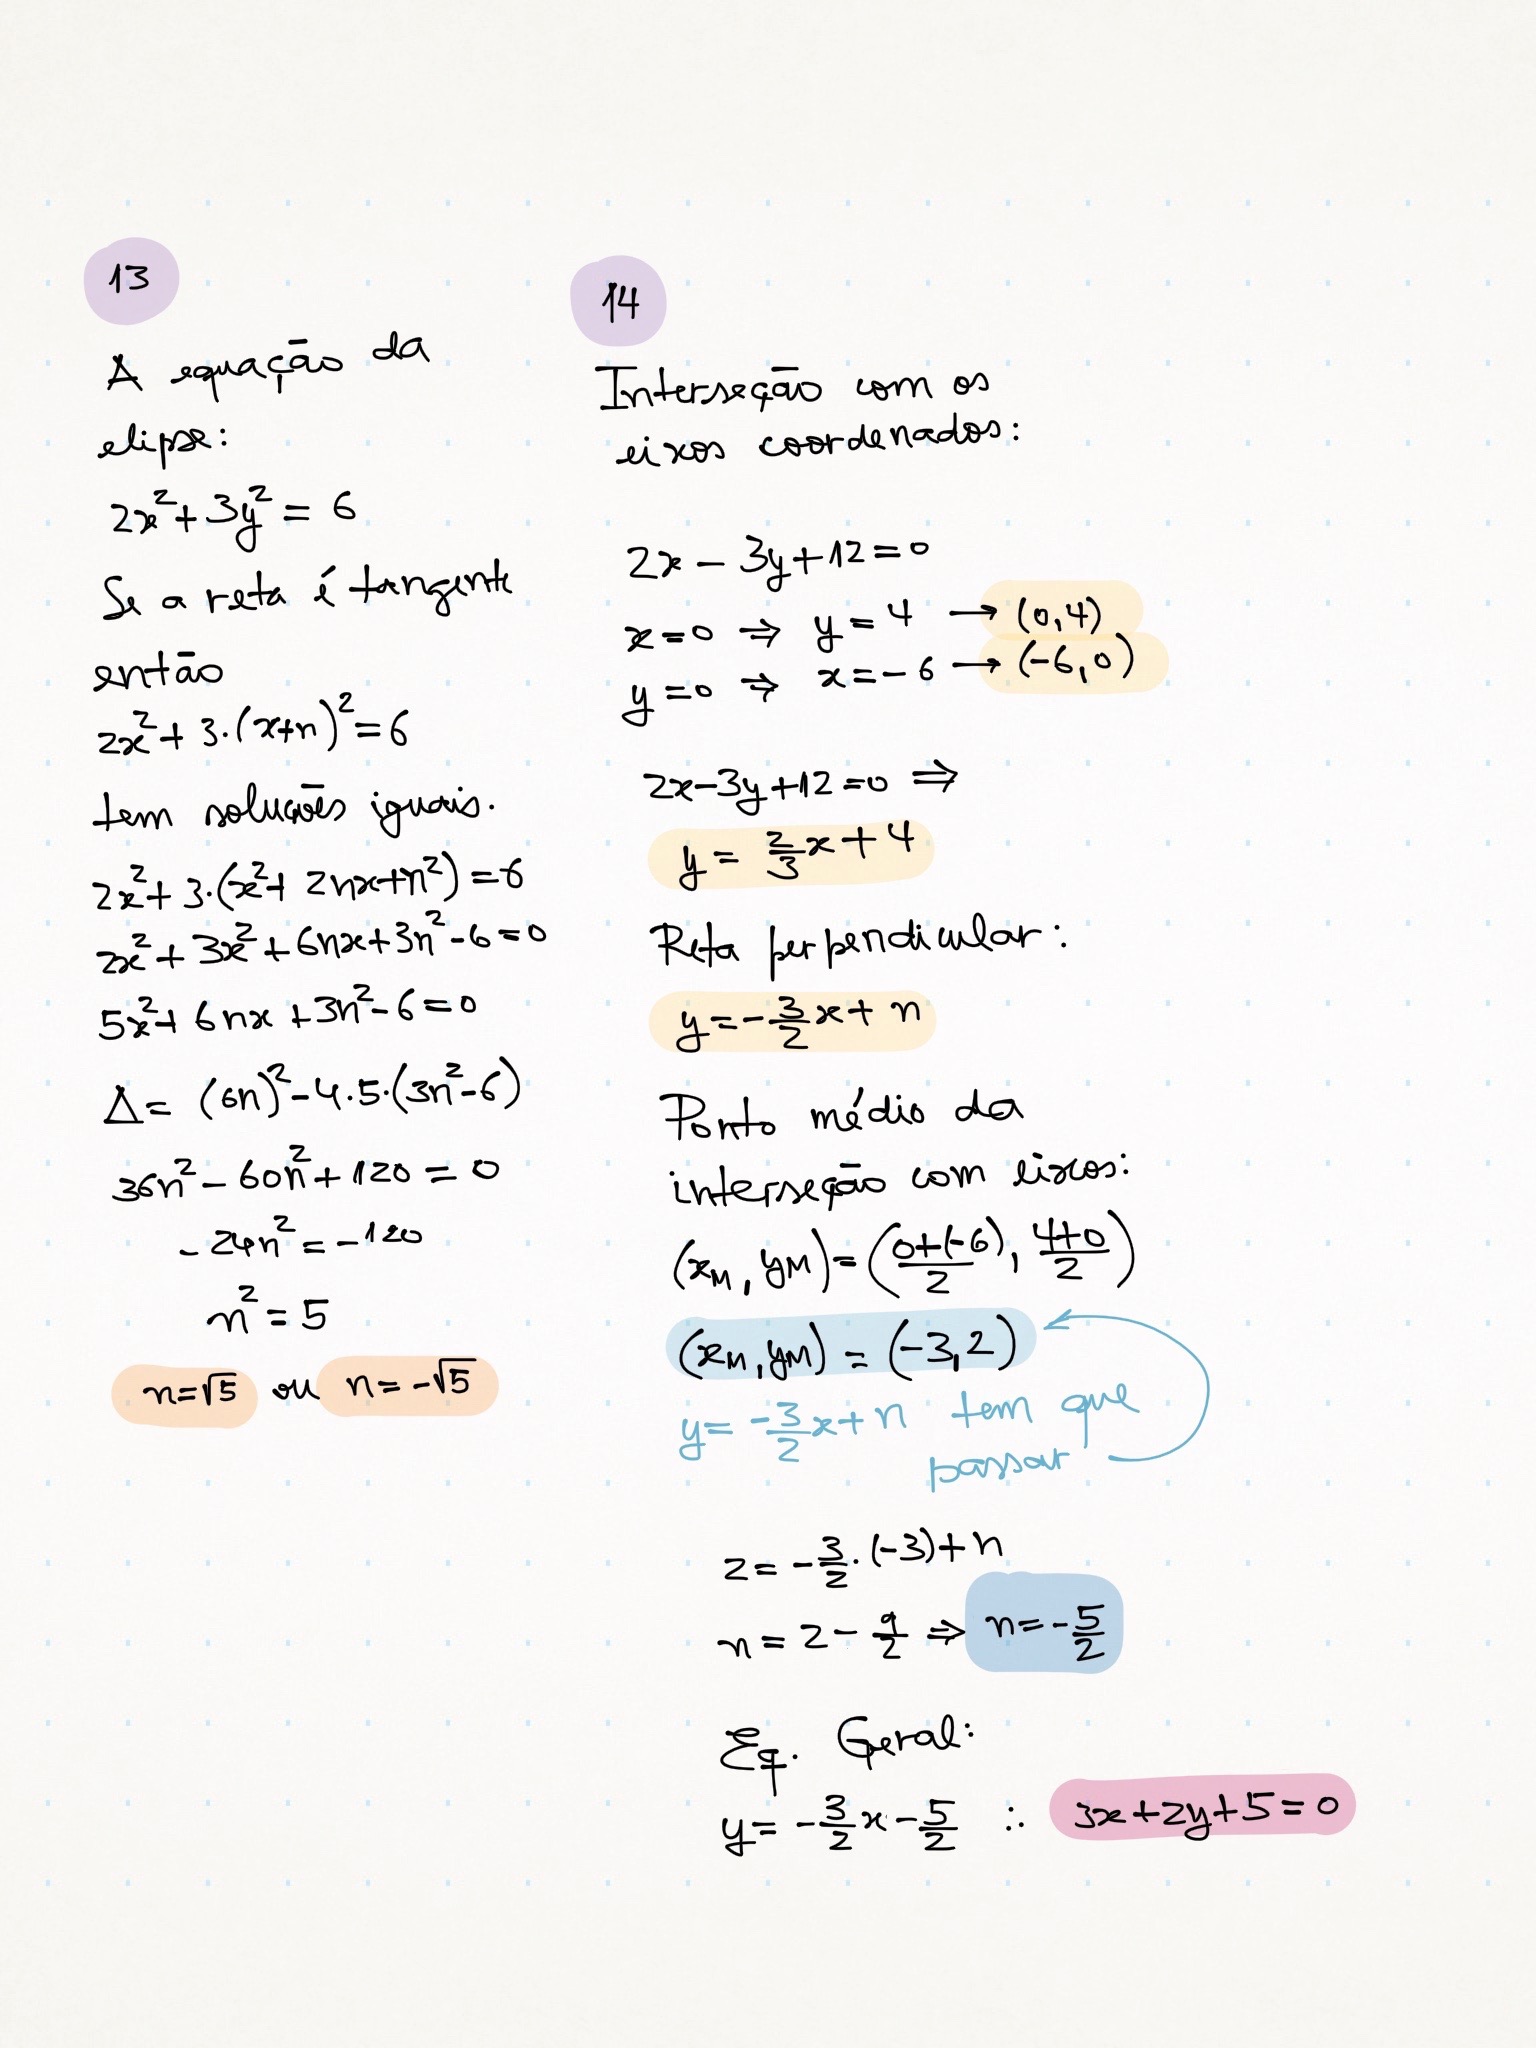 13
A equação da
elipse:
2x² + 3y² = 6
Se a reta é tangente
então
2x² + 3·(x+n)² = 6
tem soluções iguais.
2x² + 3·(x² + 2nx + n²) = 6
2x² + 3x² + 6nx + 3n² - 6 = 0
5x² + 6nx + 3n² - 6 = 0
Δ = (6n)² - 4·5·(3n² - 6)
36n² - 60n² + 120 = 0
- 24n² = - 120
n² = 5
n = √5 ou n = -√5
14
Interseção com os
eixos coordenados:
2x - 3y + 12 = 0
x = 0 ⇒ y = 4 → (0,4)
y = 0 ⇒ x = - 6 → (-6,0)
2x - 3y + 12 = 0 ⇒
y = 2/3 x + 4
Reta perpendicular:
y = - 3/2 x + n
Ponto médio da
interseção com eixos:
(xM, yM) = (0+(-6)/2, 4+0/2)
(xM, yM) = (-3, 2)
y = - 3/2 x + n tem que
passar
2 = - 3/2 · (-3) + n
n = 2 - 9/2 ⇒ n = - 5/2
Eq. Geral:
y = - 3/2 x - 5/2 ∴ 3x + 2y + 5 = 0